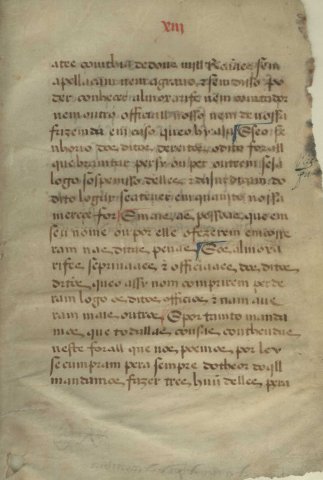 xiii
atee conthia de dous mill Reaaes sem
apellaçam nem agravo, & sem disso po
der conhecer almoxarife nem contador
nem outro official nosso nem de nossa
fazenda em caso que o hy aja ¶ Se o se
nhorio dos ditos dereitos o dito forall
que brantar per sy ou per outrem seja
logo sospensso delles & da
do dito lugar se a tever em quanto nossa
merçee for ¶ E mais as pessoas que em
seu nome ou por elle o fezerem encorre
ram nas ditas penas ¶ E os almoxa
rifes scprivaães & officiaaes dos ditos
ditos que o assy nom comprirem perde
ram logo os ditos officios & nam ave
ram mais outros E por tanto manda
mos que todallas cousas contheudas
neste forall que nos poemos por ley
se cumpram pera sempre do theor do qll
mandamos fazer tres huũ delles pera